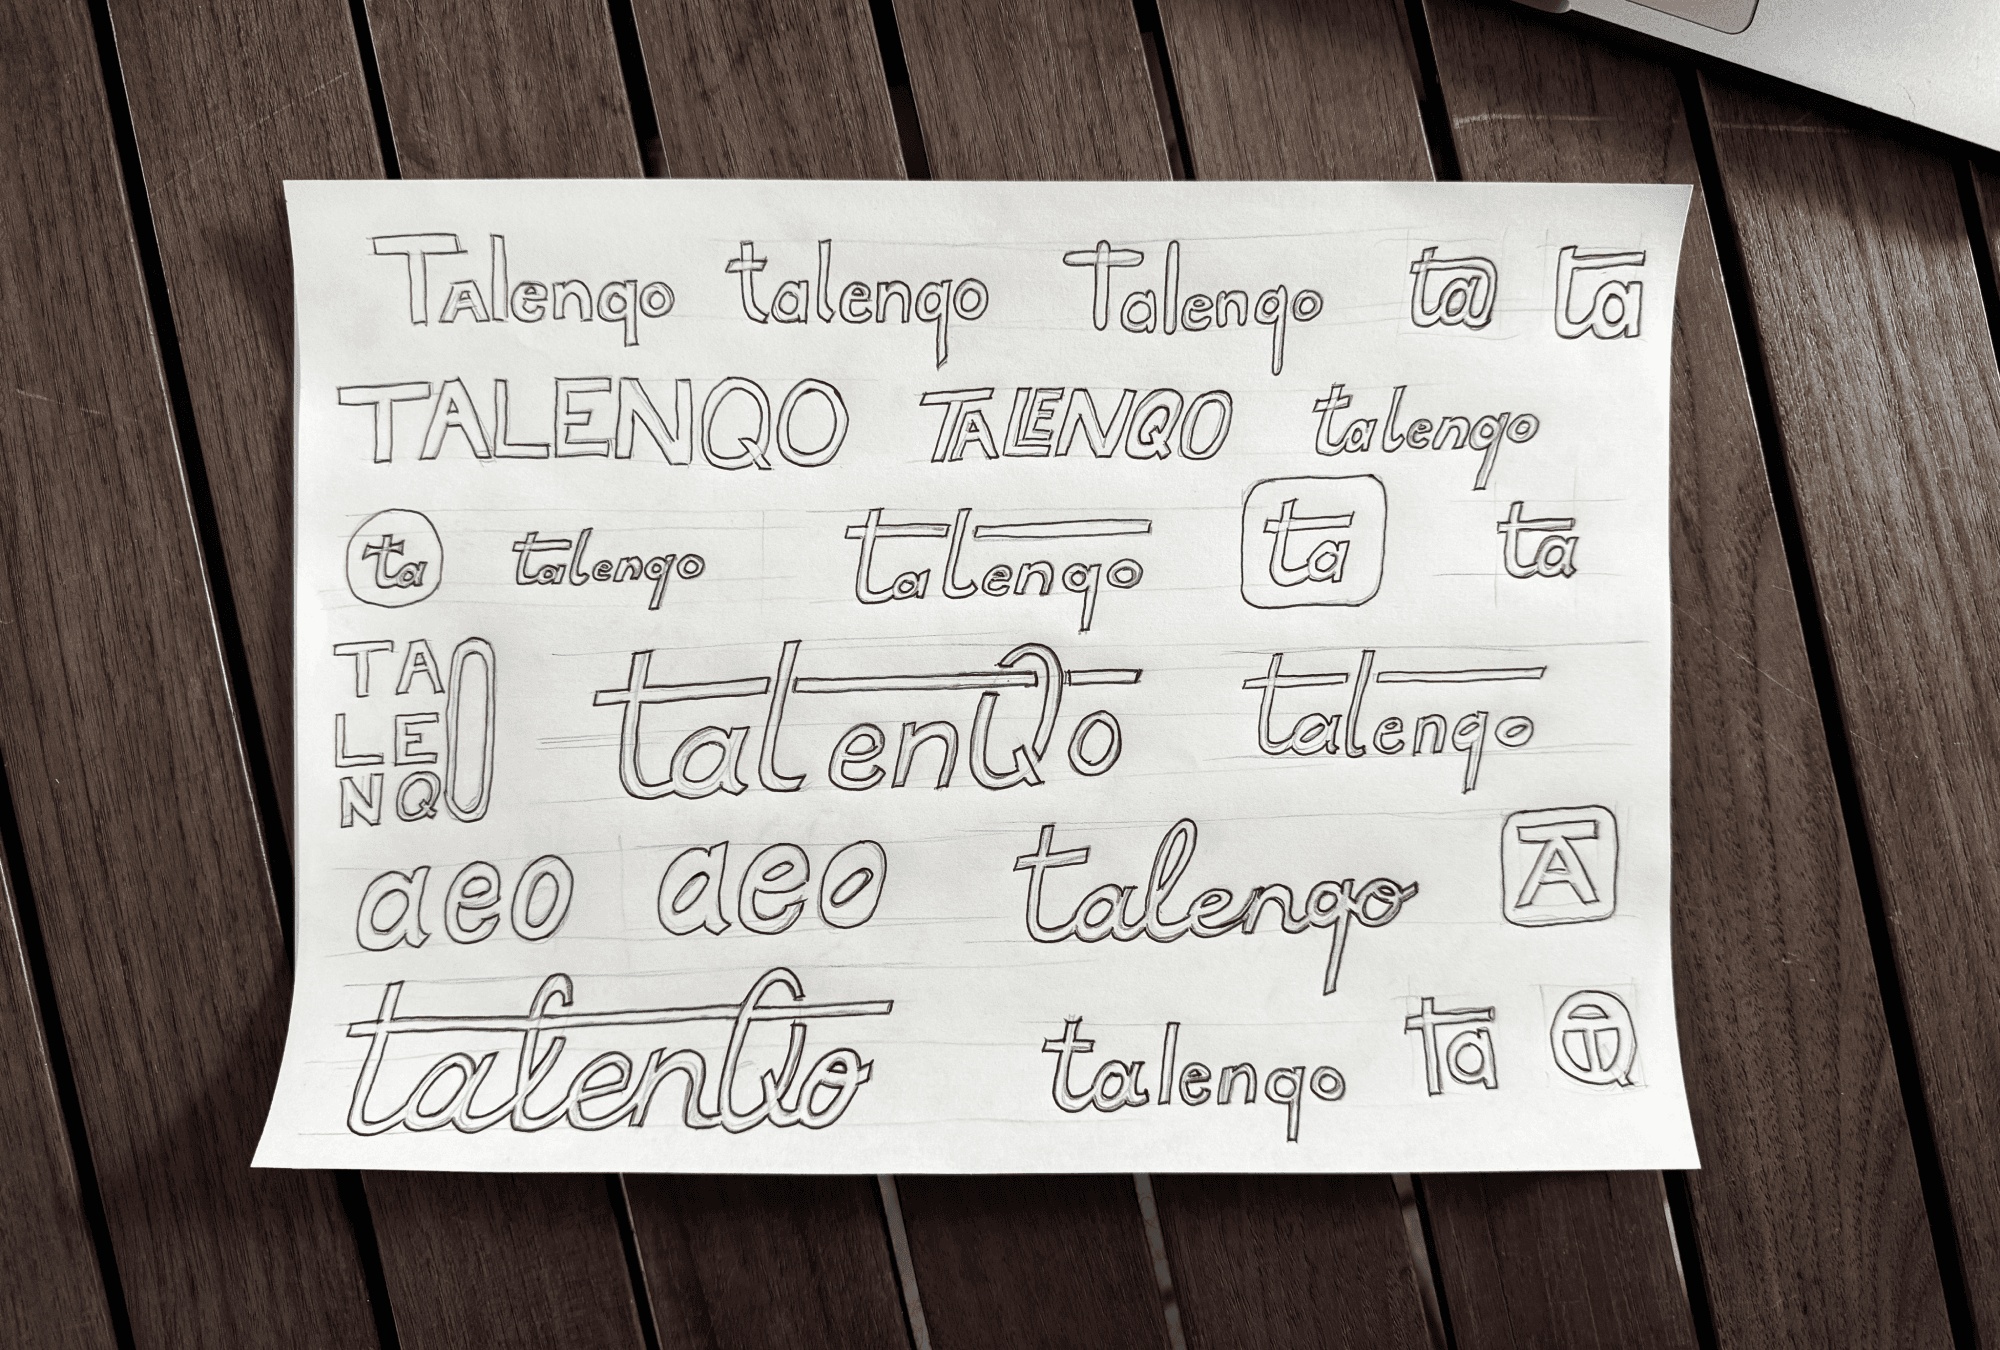 TAlenqo talenqo Talenqo ta ta
TALENQO TALENQO talenqo
ta talenqo talenqo ta ta
TA
LE
NQO
talenQo talenqo
aeo aeo talenqo TA
talenQo talenqo ta